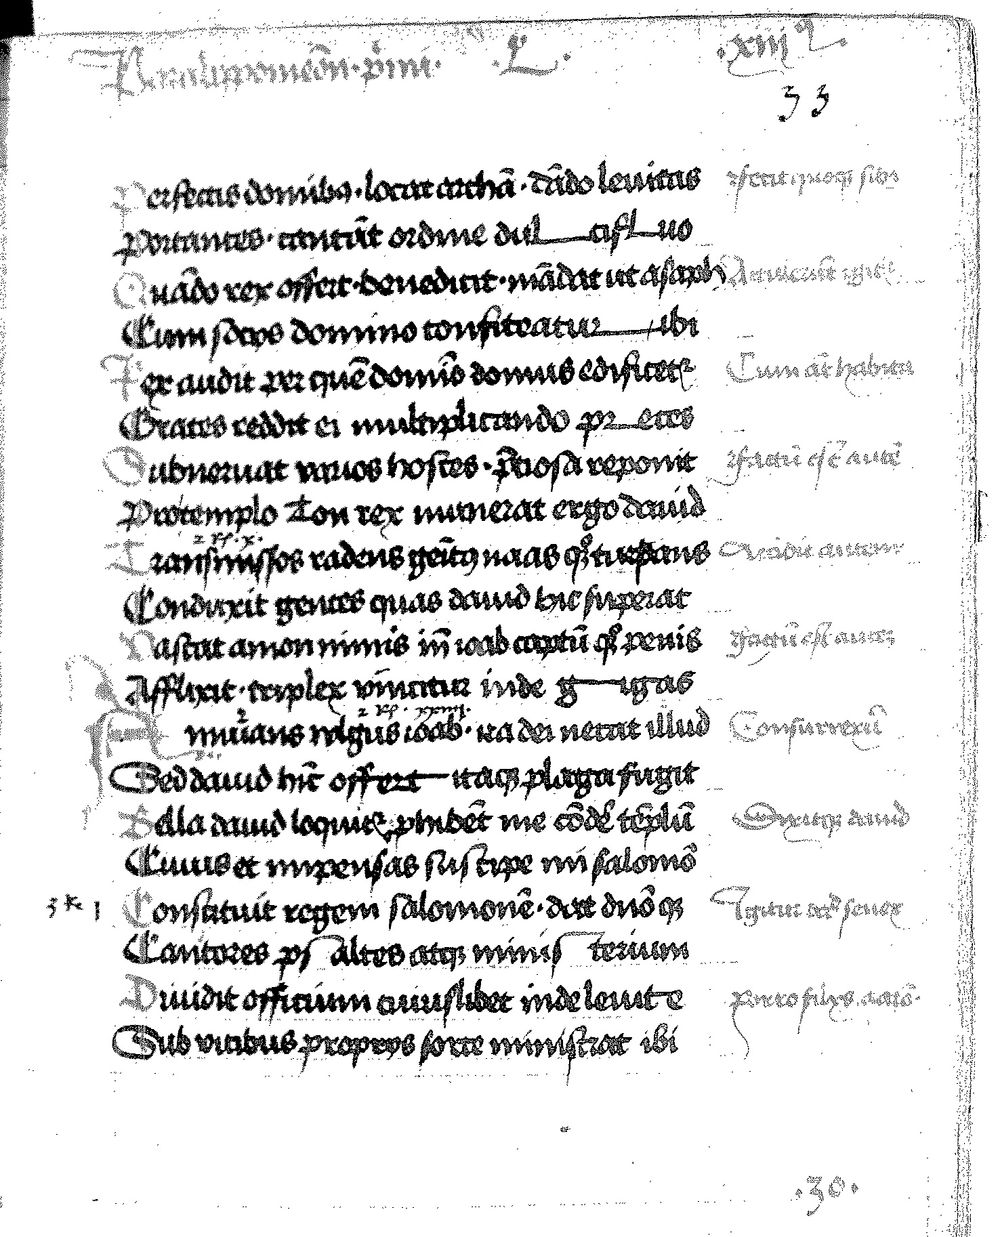 Paralippomenon · p̄mi · L · xiii
33
Perfectis domibus · locat archā · dādo levitas fecit quoqȝ sibi
Portantes · cantāt ordine dul cifl uo
Quādo rex offert · benedicit · mādat ut asaph
Cum socijs domino confiteatur ibi
Rex audit per quē domī domus edificet Cum aūt habita
Grates reddit ei multiplicando pr eces
Subnervat varios hostes · reponit factū est autē
Pro templo Tou rex munerat ergo david
Transmissos radens Accidit autem
Conduxit gentes quas david hic superat
Vastat amon nimis ioab captū penis factū est autē
Afflixit · triplex vincitur inde g igas
ioab · ira dei necat illud Consurrexit
Sed david hīc offert itaqȝ plaga fugit
Bella david loquitur me tēplū Dixitqȝ david
Cuius et impensas suscipe mi salomō
3 R 1 Constituit regem salomonē · Igitur david senex
Cantores ps altes atqȝ minis terium
Dividit officium cuiuslibet inde levite Porro filijs aarō
Sub vicibus proprijs sorte ministrat ibi
· 30 ·